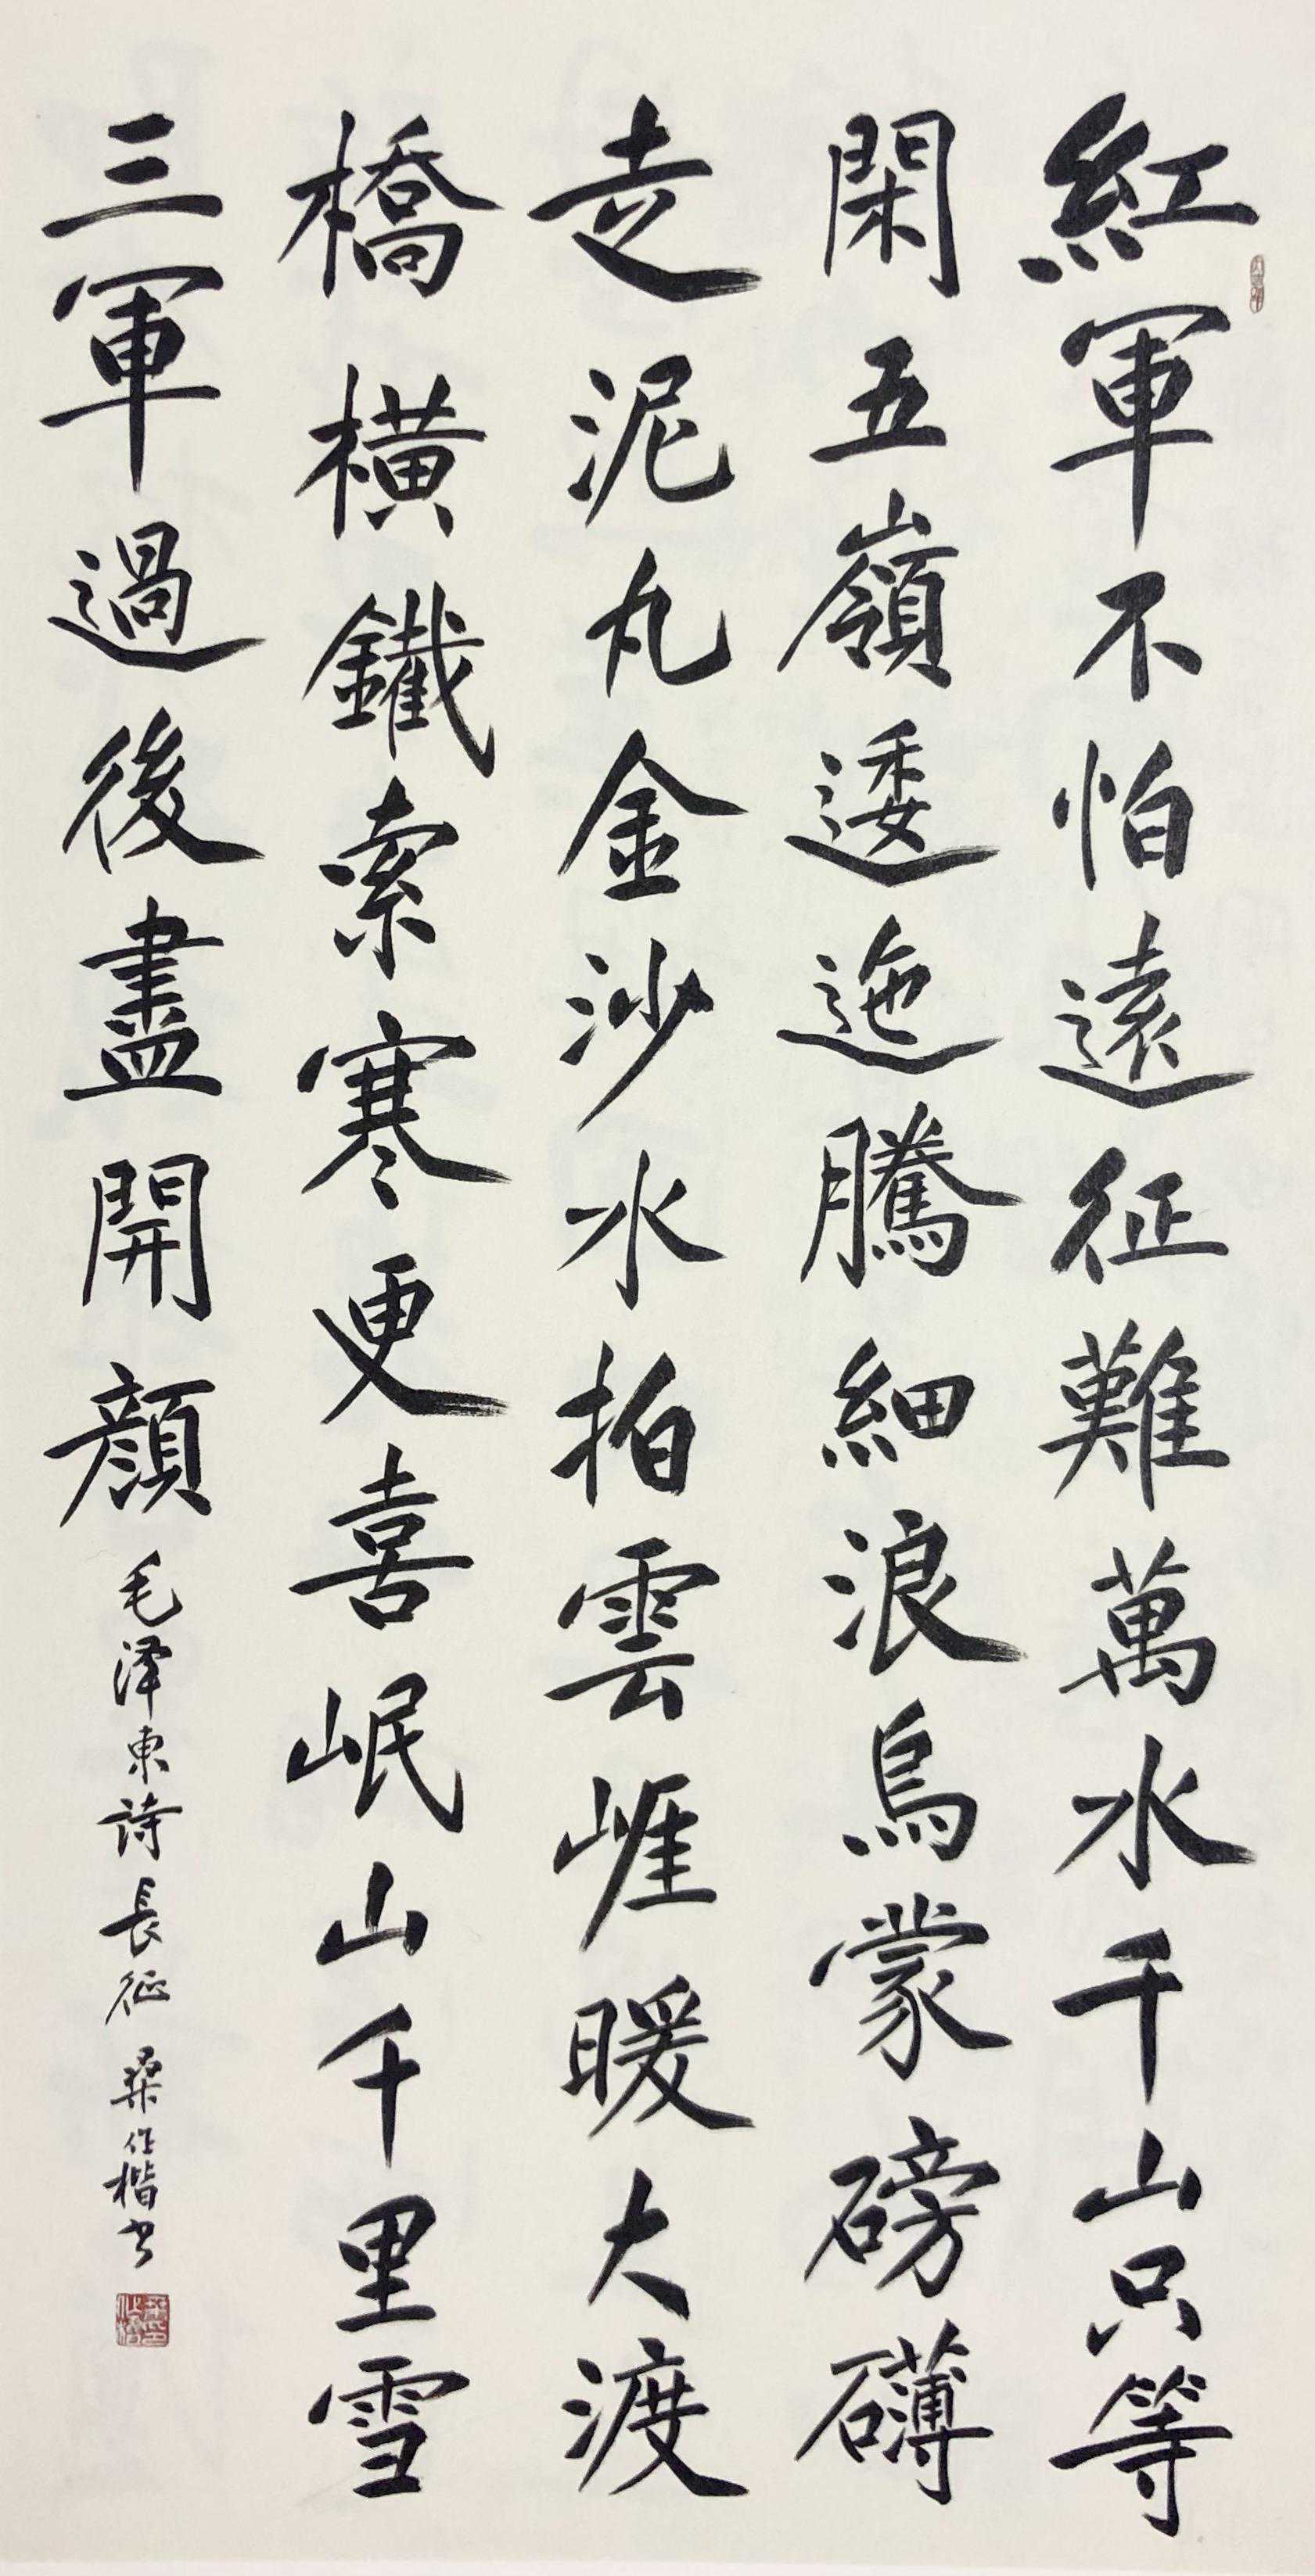 紅軍不怕遠征難萬水千山只等
閑五嶺逶迤騰細浪烏蒙磅礴
走泥丸金沙水拍雲崖暖大渡
橋橫鐵索寒更喜岷山千里雪
三軍過後盡開顏
毛泽東詩長征 桑作楷书